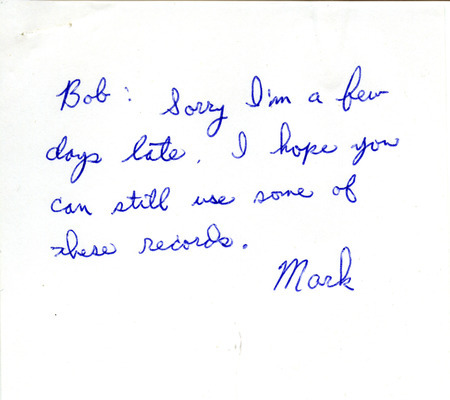 Bob: Sorry I'm a few
days late. I hope you
can still use some of
these records.
Mark